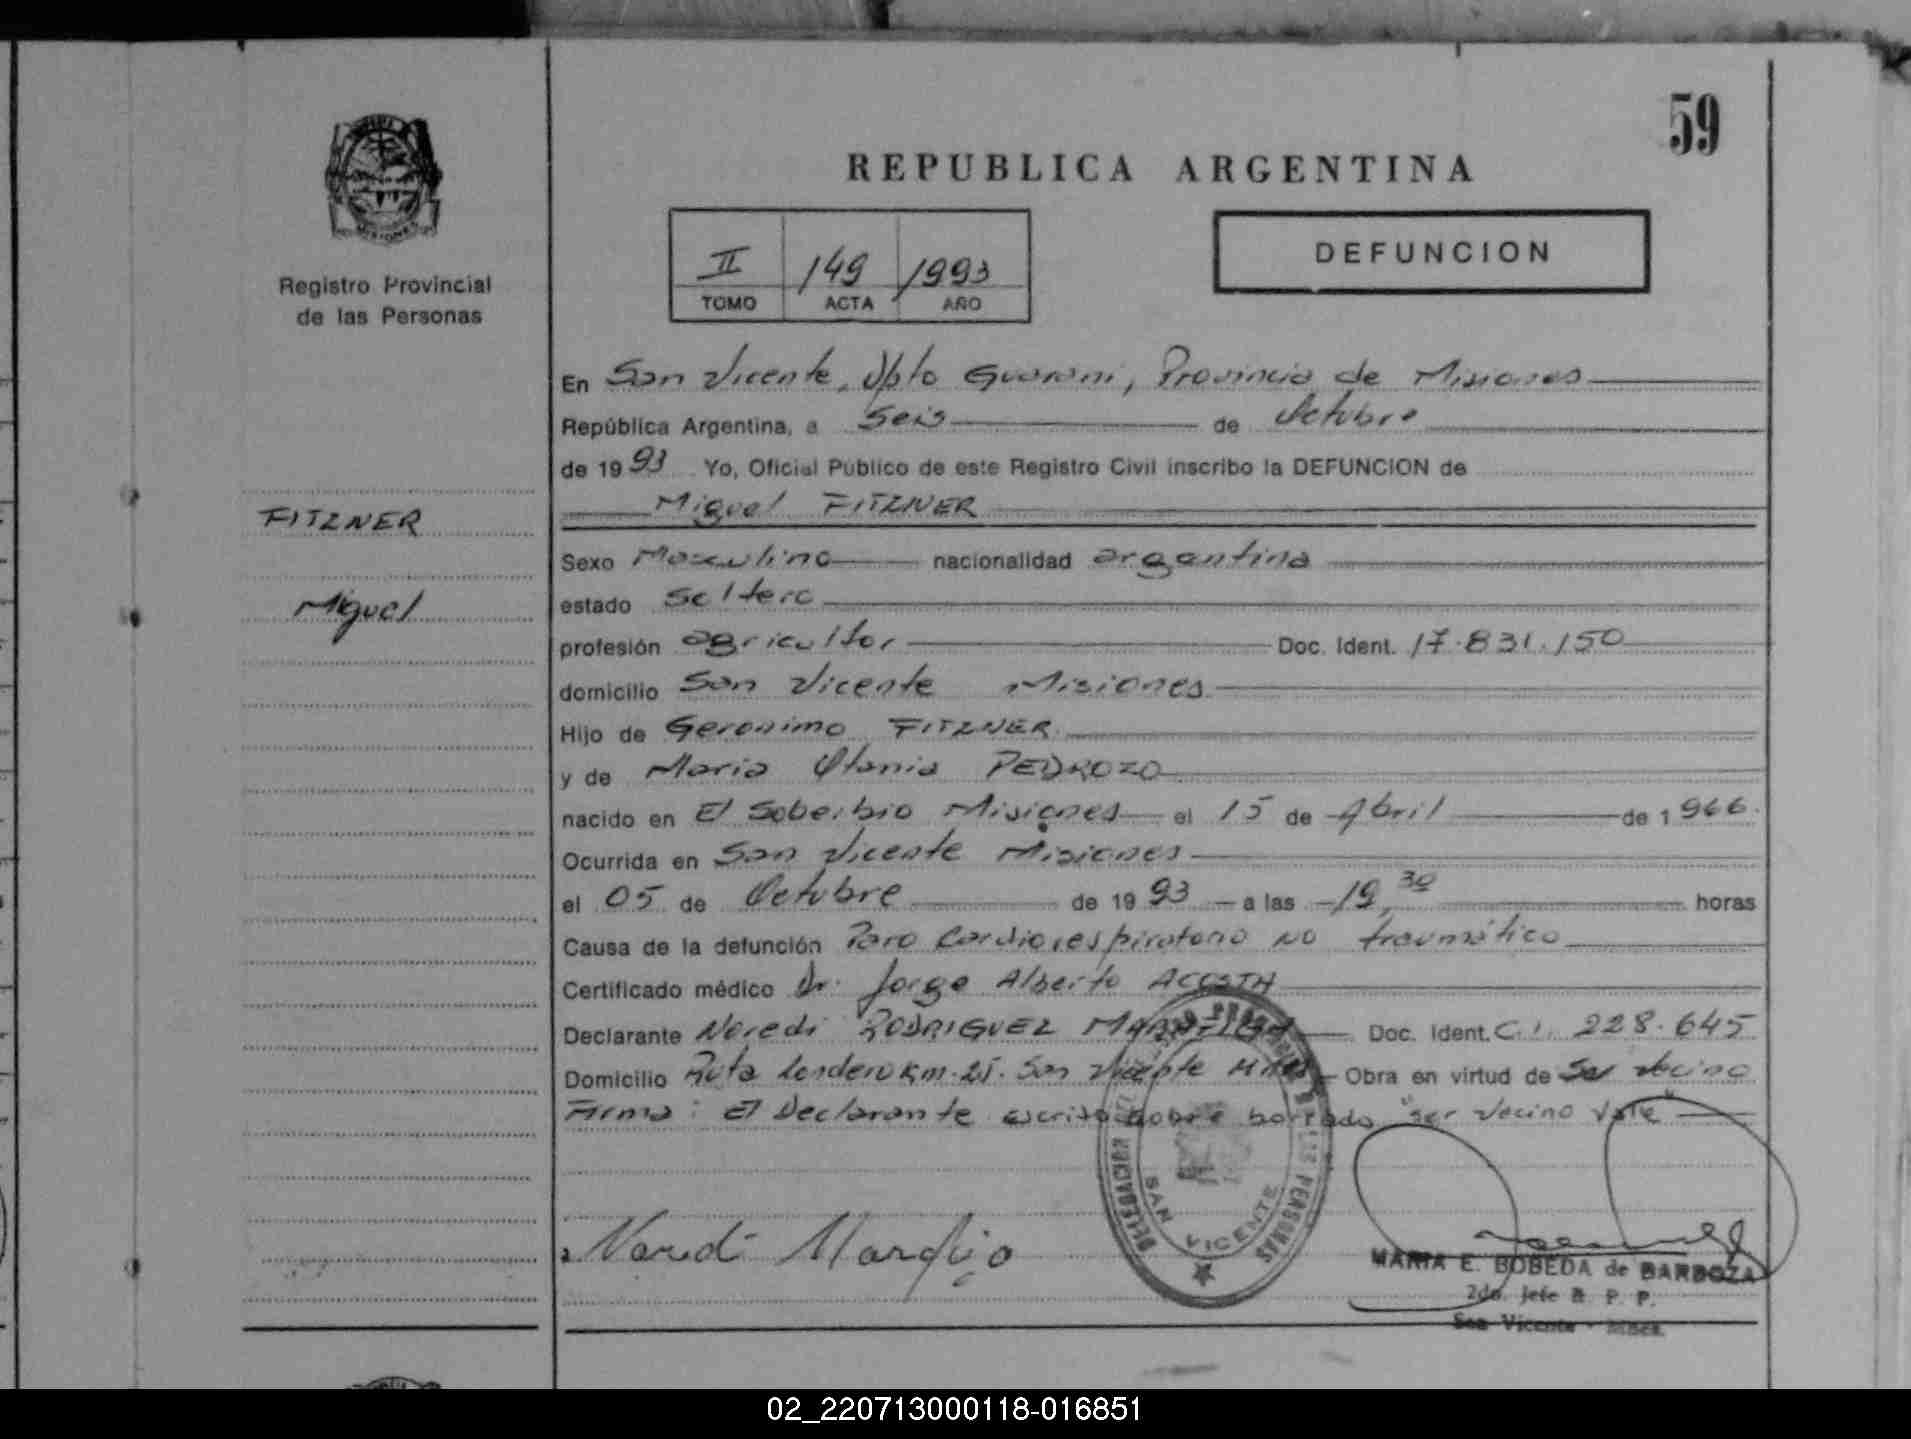 59
REPUBLICA ARGENTINA
II 149 1993
TOMO ACTA AÑO
DEFUNCION
Registro Provincial
de las Personas
FITZNER
Miguel
En San Vicente, Dpto Guarani, Provincia de Misiones
República Argentina, a Seis de Octubre
de 1993 Yo, Oficial Público de este Registro Civil inscribo la DEFUNCION de
Miguel FITZNER
Sexo Masculino nacionalidad argentina
estado Soltero
profesión agricultor Doc. Ident. 17.831.150
domicilio San Vicente Misiones
Hijo de Geronimo FITZNER
y de Maria PEDROZO
nacido en El Soberbio Misiones el 15 de Abril de 1966.
Ocurrida en San Vicente Misiones
el 05 de Octubre de 1993 a las 19,30 horas
Causa de la defunción Paro Cardiorespiratorio no traumático
Certificado médico Dr. Jorge Alberto ACOSTA
Declarante Noredi RODRIGUEZ Doc. Ident. C.I. 228.645
Domicilio Ruta Km. 25. San Vicente Mnes Obra en virtud de Ser vecino
Firma: El Declarante escrito sobre borrado "ser vecino vale"
DELEGACION DE LAS PERSONAS
SAN VICENTE
MARIA E. BOBEDA de BARBOZA
2do. Jefe R. P. P.
San Vicente - Mnes.
02_220713000118-016851